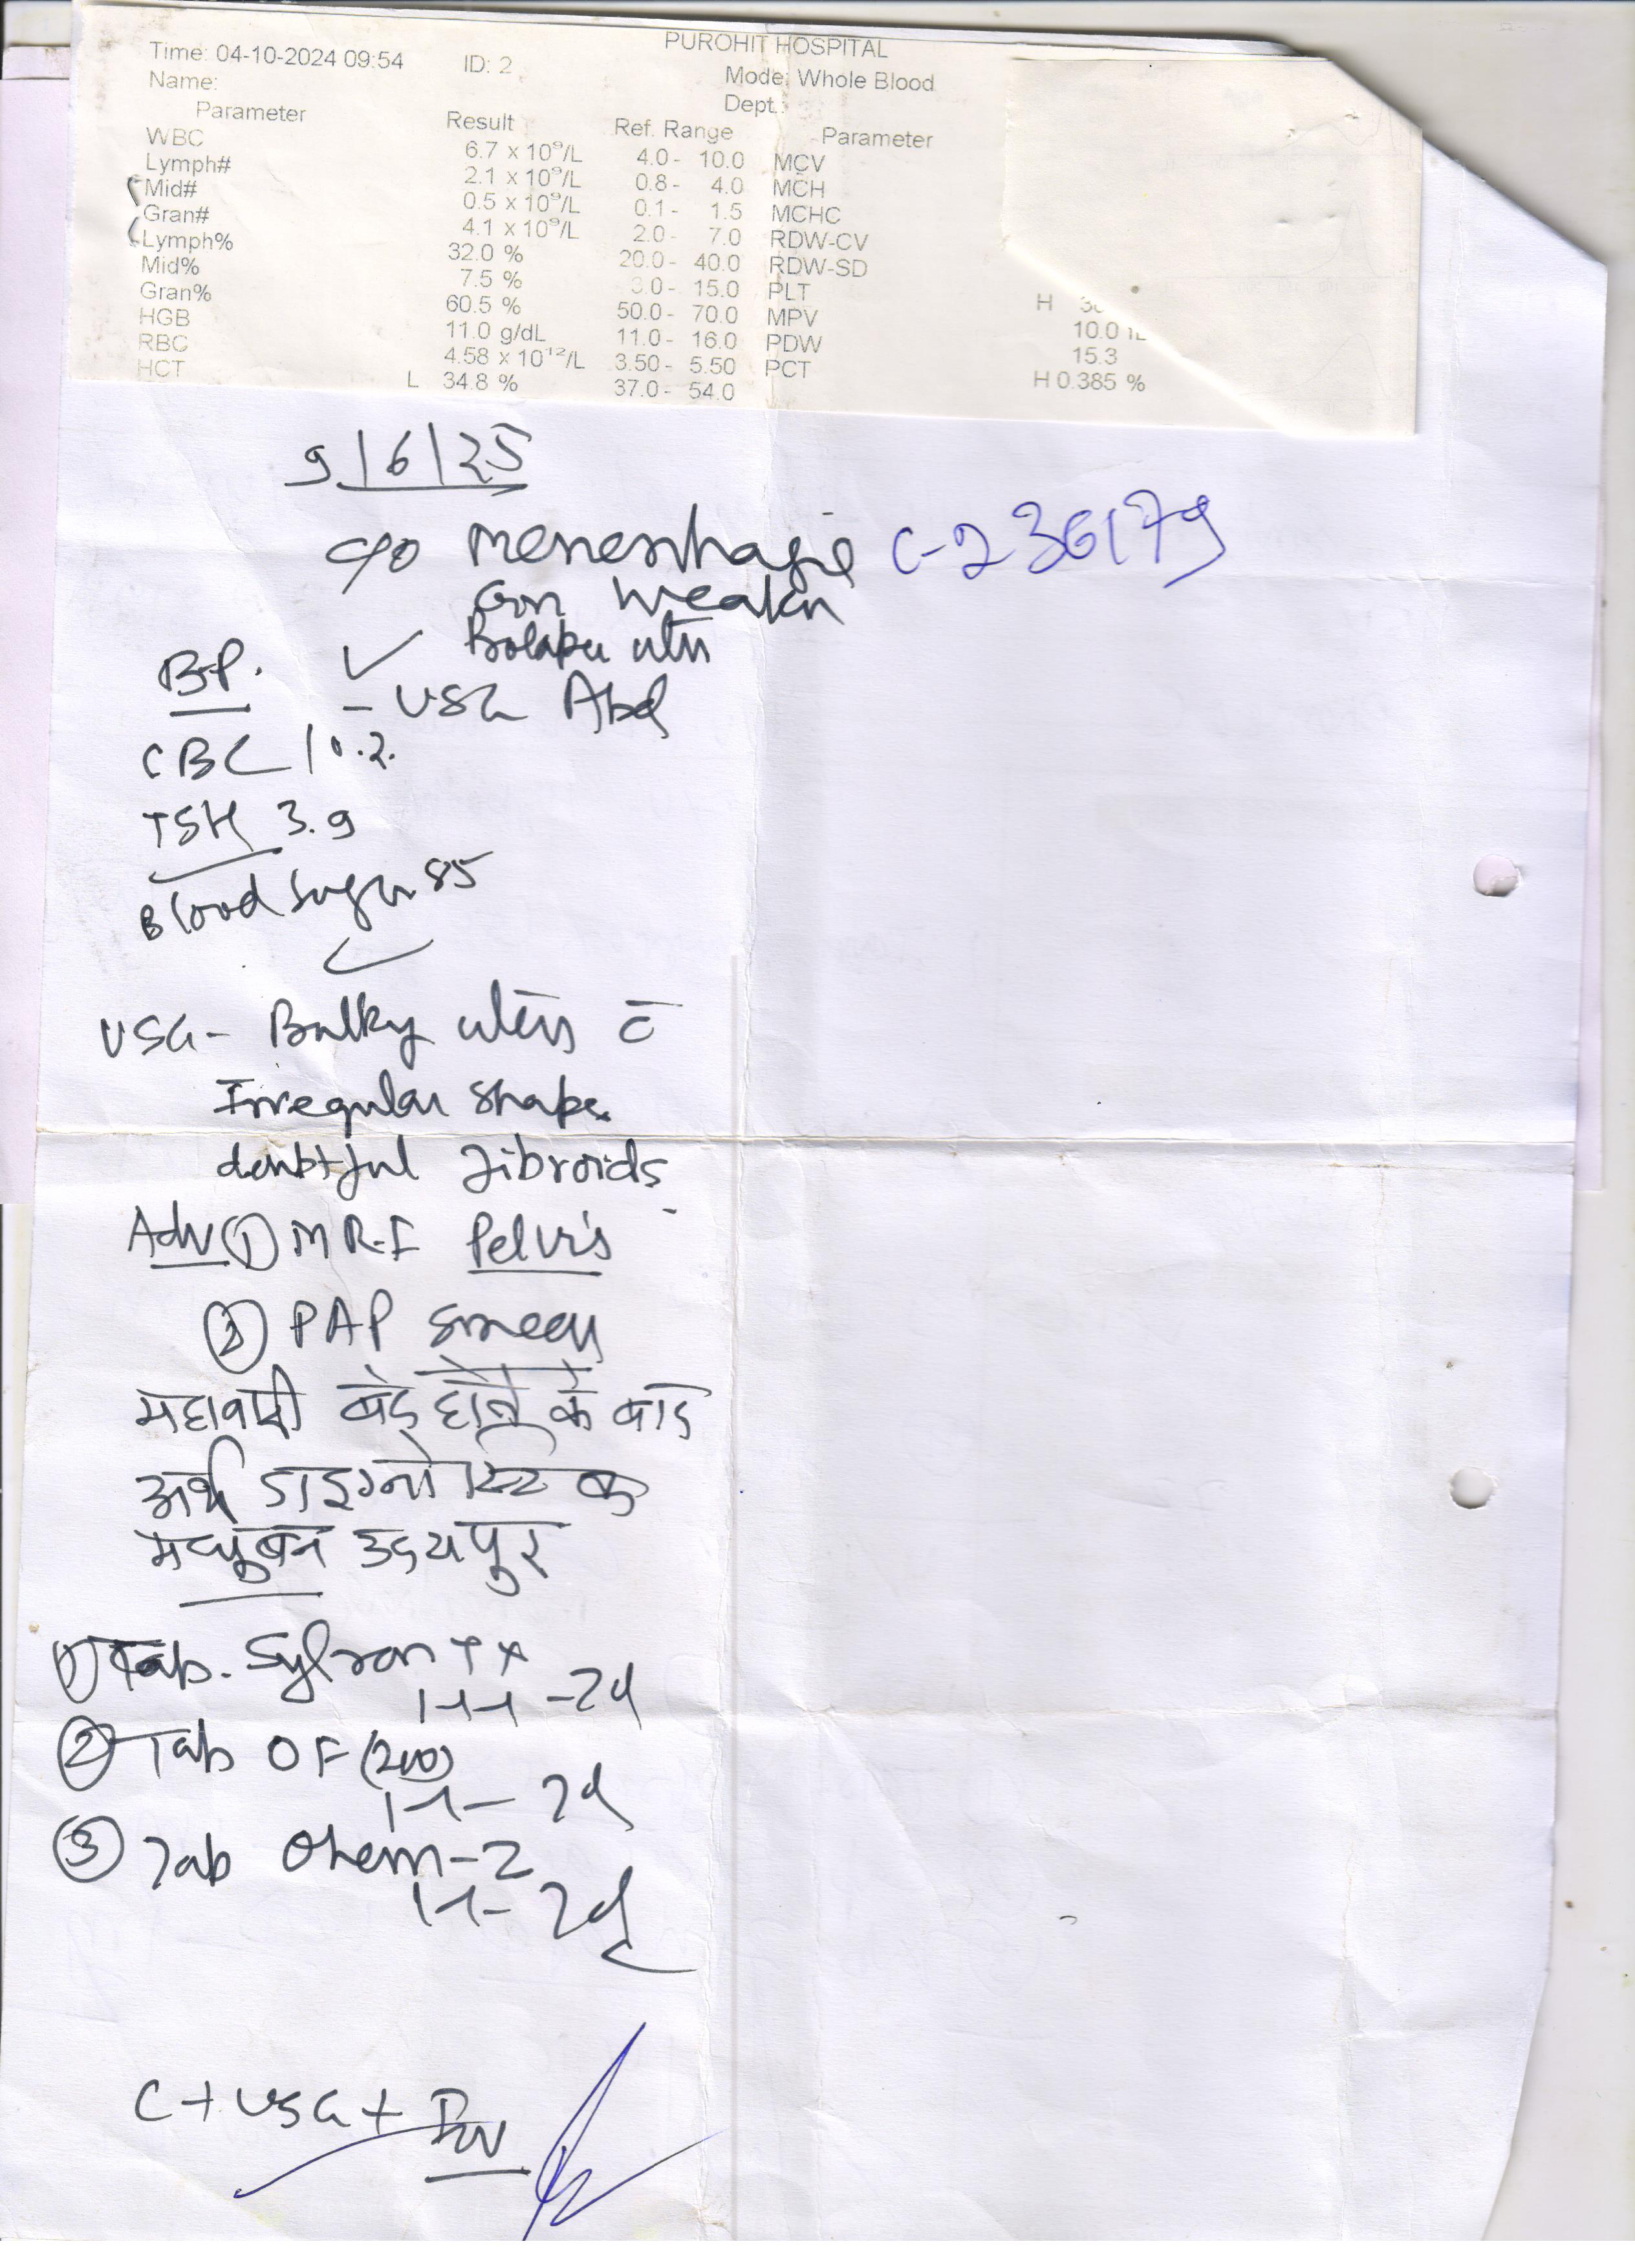 PUROHIT HOSPITAL
Time: 04-10-2024 09:54 ID: 2 Mode: Whole Blood
Name: Dept.:
Parameter Result Ref. Range Parameter
WBC 6.7 x 10⁹/L 4.0- 10.0 MCV
Lymph# 2.1 x 10⁹/L 0.8- 4.0 MCH
Mid# 0.5 x 10⁹/L 0.1- 1.5 MCHC
Gran# 4.1 x 10⁹/L 2.0- 7.0 RDW-CV
Lymph% 32.0 % 20.0- 40.0 RDW-SD
Mid% 7.5 % 3.0- 15.0 PLT H
Gran% 60.5 % 50.0- 70.0 MPV 10.0
HGB 11.0 g/dL 11.0- 16.0 PDW 15.3
RBC 4.58 x 10¹²/L 3.50- 5.50 PCT H 0.385 %
HCT L 34.8 % 37.0- 54.0
9/6/25
c/o C-236179
Gen
B.P. ✓
- USG Abd
CBC 10.2.
TSH 3.9
Blood Sugar 85
USG- Bulky c̄
Irregular shape
doubtful fibroids
Adv ① MRI Pelvis
② PAP smear
महावारी बंद होने के बाद
अर्थ डाइग्नोस्टिक
मधुबन उदयपुर
① Tab.
1-1-1 -2d
② Tab OF (200)
1-1- 2d
③ Tab
1-1- 2d
C + USG +